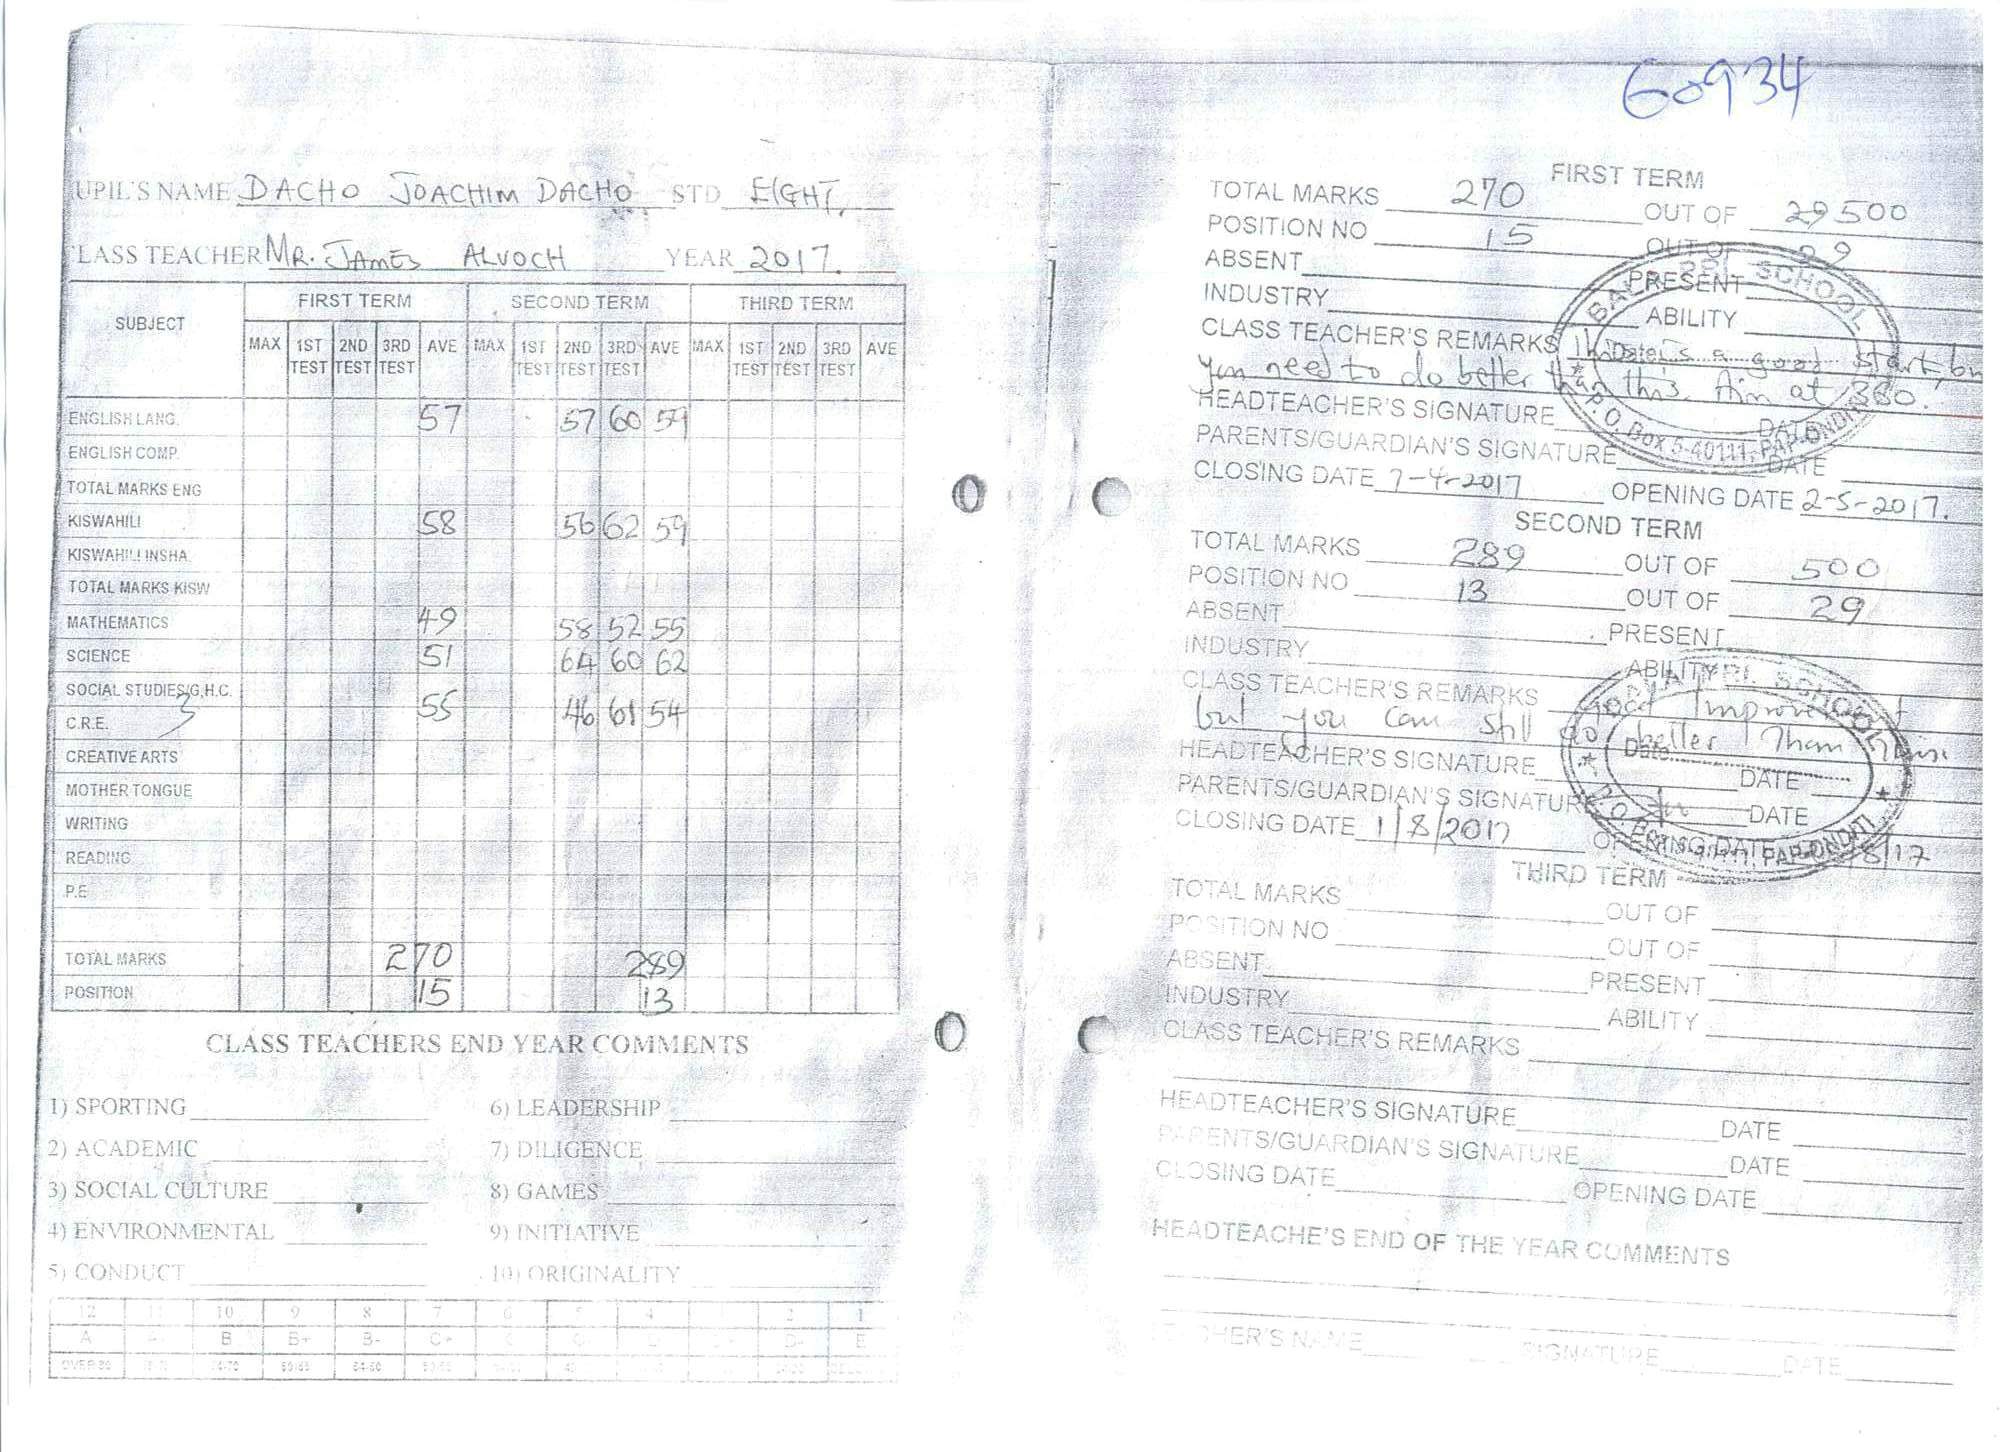 60934
UPIL'S NAME DACHO JOACHIM DACHO STD EIGHT.
CLASS TEACHER MR. JAMES ALVOCH YEAR 2017.
SUBJECT FIRST TERM SECOND TERM THIRD TERM
MAX 1ST TEST 2ND TEST 3RD TEST AVE MAX 1ST TEST 2ND TEST 3RD TEST AVE MAX 1ST TEST 2ND TEST 3RD TEST AVE
ENGLISH LANG. 57 57 60 59
ENGLISH COMP.
TOTAL MARKS ENG
KISWAHILI 58 56 62 59
KISWAHILI INSHA.
TOTAL MARKS KISW
MATHEMATICS 49 58 52 55
SCIENCE 51 64 60 62
SOCIAL STUDIES/G,H.C.
C.R.E. 55 46 61 54
CREATIVE ARTS
MOTHER TONGUE
WRITING
READING
P.E
TOTAL MARKS 270 289
POSITION 15 13
CLASS TEACHERS END YEAR COMMENTS
1) SPORTING 6) LEADERSHIP
2) ACADEMIC 7) DILIGENCE
3) SOCIAL CULTURE 8) GAMES
4) ENVIRONMENTAL 9) INITIATIVE
5) CONDUCT 10) ORIGINALITY
12 11 10 9 8 7 6 5 4 2 1
A B B+ B- C+ D- E
FIRST TERM
TOTAL MARKS 270 OUT OF 29500
POSITION NO 15 OUT OF 29
ABSENT PRESENT
INDUSTRY ABILITY
CLASS TEACHER'S REMARKS This is a good start, bu
you need to do better than this. Aim at 380.
HEADTEACHER'S SIGNATURE DATE
PARENTS/GUARDIAN'S SIGNATURE DATE
CLOSING DATE 7-4-2017 OPENING DATE 2-5-2017.
SCHOOL
P.O. Box 5-40111, PAP-ONDITI
SECOND TERM
TOTAL MARKS 289 OUT OF 500
POSITION NO 13 OUT OF 29
ABSENT PRESENT
INDUSTRY ABILITY
CLASS TEACHER'S REMARKS Good Improvement
but you can still do better than this.
HEADTEACHER'S SIGNATURE DATE
PARENTS/GUARDIAN'S SIGNATURE DATE
CLOSING DATE 1/8/2017 OPENING DATE 8/17
SCHOOL
Date
PAP-ONDITI
THIRD TERM
TOTAL MARKS OUT OF
POSITION NO OUT OF
ABSENT PRESENT
INDUSTRY ABILITY
CLASS TEACHER'S REMARKS
HEADTEACHER'S SIGNATURE DATE
PARENTS/GUARDIAN'S SIGNATURE DATE
CLOSING DATE OPENING DATE
HEADTEACHE'S END OF THE YEAR COMMENTS
HER'S NAME SIGNATURE DATE